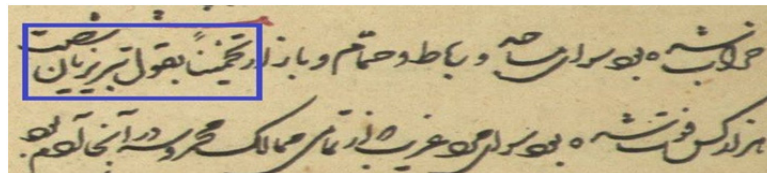 خراب شده بود سوای مساجد و رباط و حمام و بازار تخمیناً بقول تبریزیان شصت
هزار کس فوت شده بود سوای مرد غریب از تمامی ممالک محروسه در آنجا آمده بود